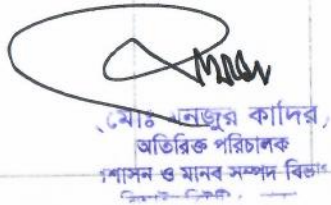 মোঃ মনজুর কাদির,
অতিরিক্ত পরিচালক
প্রশাসন ও মানব সম্পদ বিভাগ